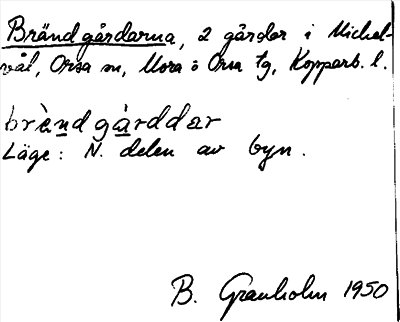 Brändgårdarna, 2 gårdar i Mickel-
vål, Orsa sn, Mora o Orsa tg, Kopparb. l.
brèndgàrddar
Läge: N. delen av byn.
B. Granholm 1950